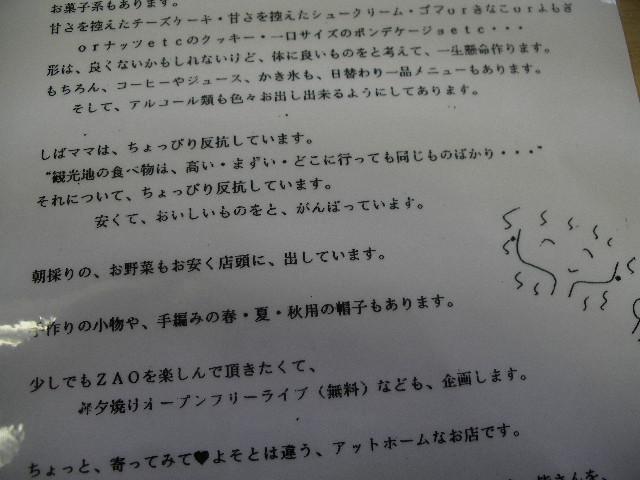 お菓子系もあります。
甘さを控えたチーズケーキ・甘さを控えたシュークリーム・ゴマorきなこorよもぎ
orナッツetcのクッキー・一口サイズのポンデケージョetc・・・
形は、良くないかもしれないけど、体に良いものをと考えて、一生懸命作ります。
もちろん、コーヒーやジュース、かき氷も、日替わり一品メニューもあります。
そして、アルコール類も色々お出し出来るようにしてあります。
しばママは、ちょっぴり反抗しています。
“観光地の食べ物は、高い・まずい・どこに行っても同じものばかり・・・”
それについて、ちょっぴり反抗しています。
安くて、おいしいものをと、がんばっています。
朝採りの、お野菜もお安く店頭に、出しています。
手作りの小物や、手編みの春・夏・秋用の帽子もあります。
少しでもZAOを楽しんで頂きたくて、
夕焼けオープンフリーライブ（無料）なども、企画します。
ちょっと、寄ってみて♥よそとは違う、アットホームなお店です。
皆さんを、